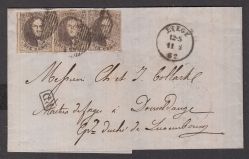 LIEGE
12-S
11 8
62
Messieurs Ch et J. Collart
Maîtres de forges à Dommeldange
Gd duché de Luxembourg
PD